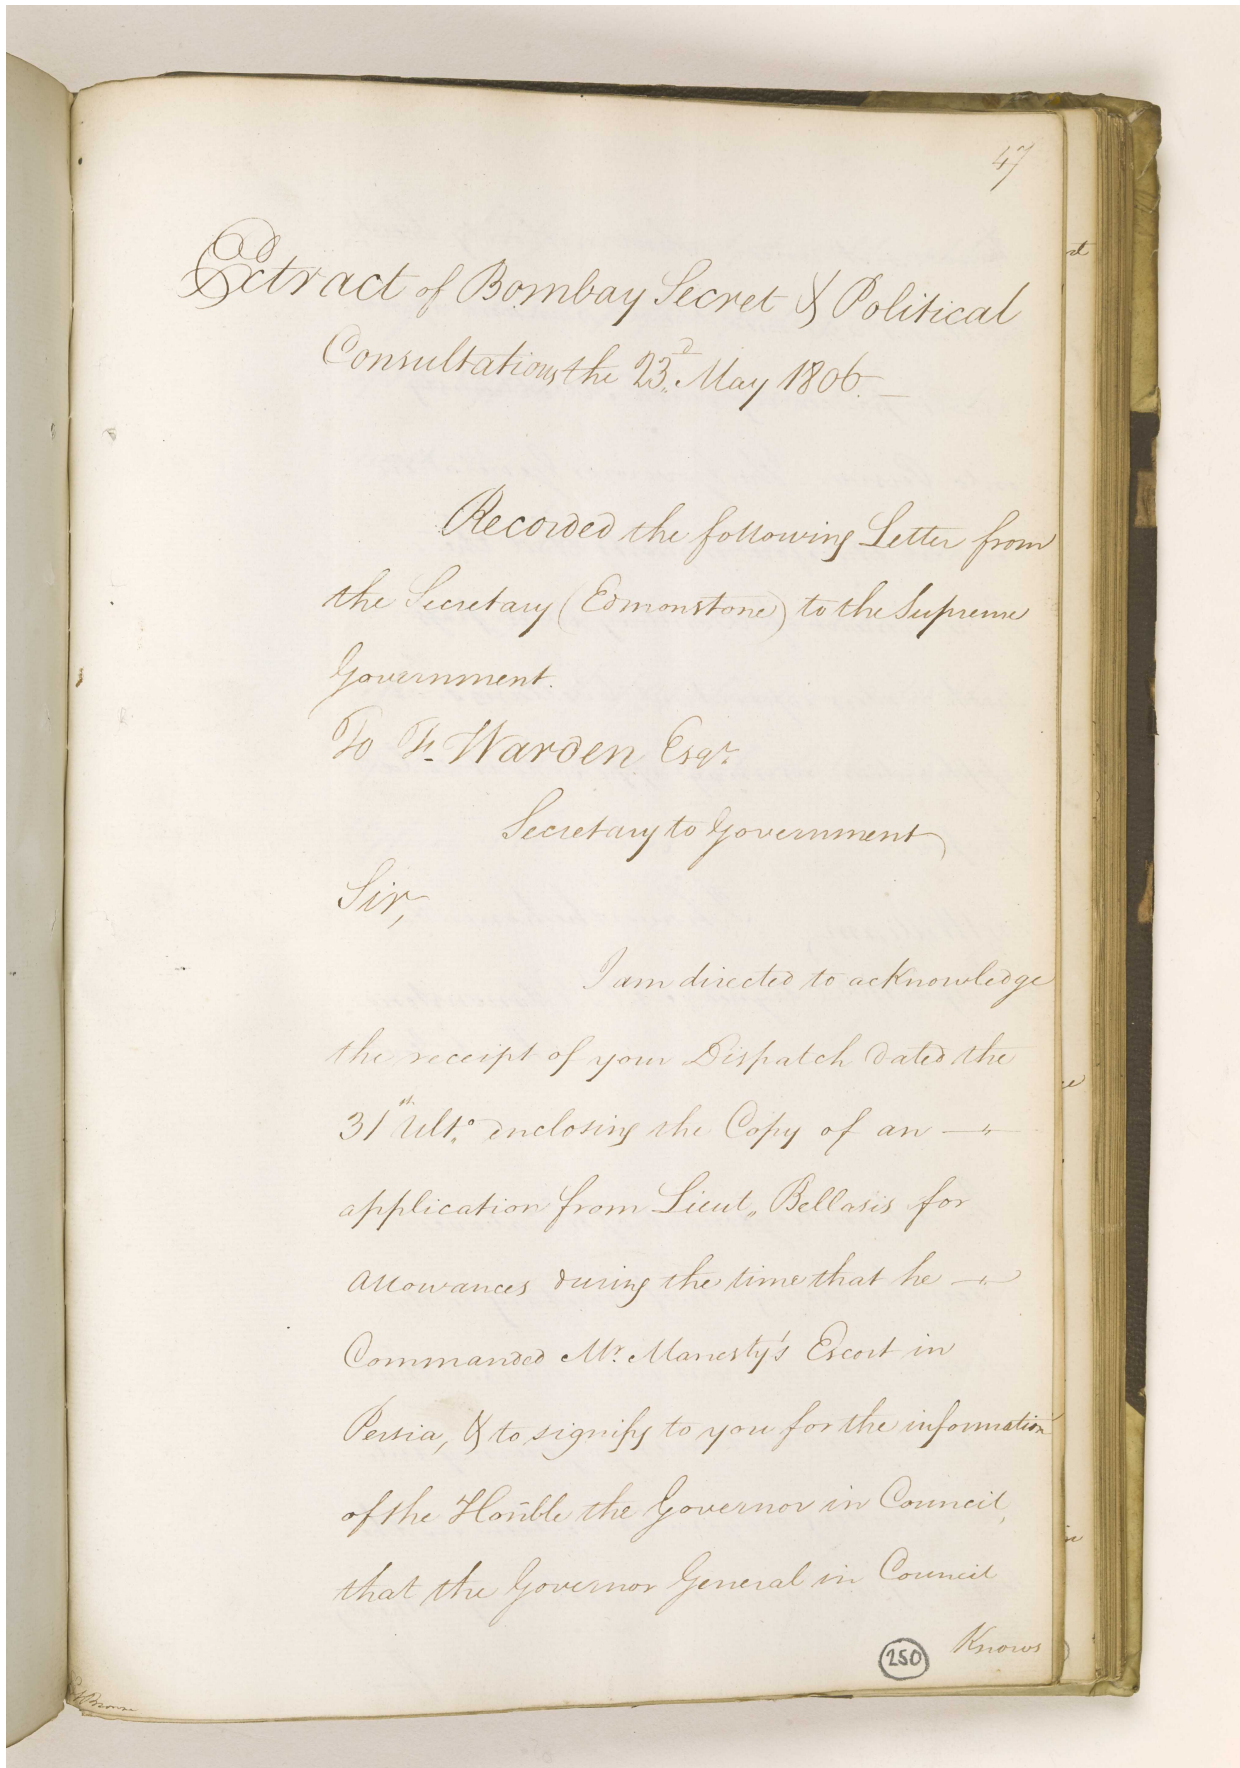 47
Extract of Bombay Secret & Political
Consultations the 23.d May 1806.
Recorded the following Letter from
the Secretary (Edmonstone) to the Supreme
Government.
To F. Warden Esqr.
Secretary to Government
Sir,
I am directed to acknowledge
the receipt of your Dispatch dated the
31th Ulto. enclosing the Copy of an
application from Lieut,, Bellasis for
Allowances during the time that he
Commanded Mr. Manesty's Escort in
Persia, & to signify to you for the information
of the Hon̄ble the Governor in Council,
that the Governor General in Council
Knows
250